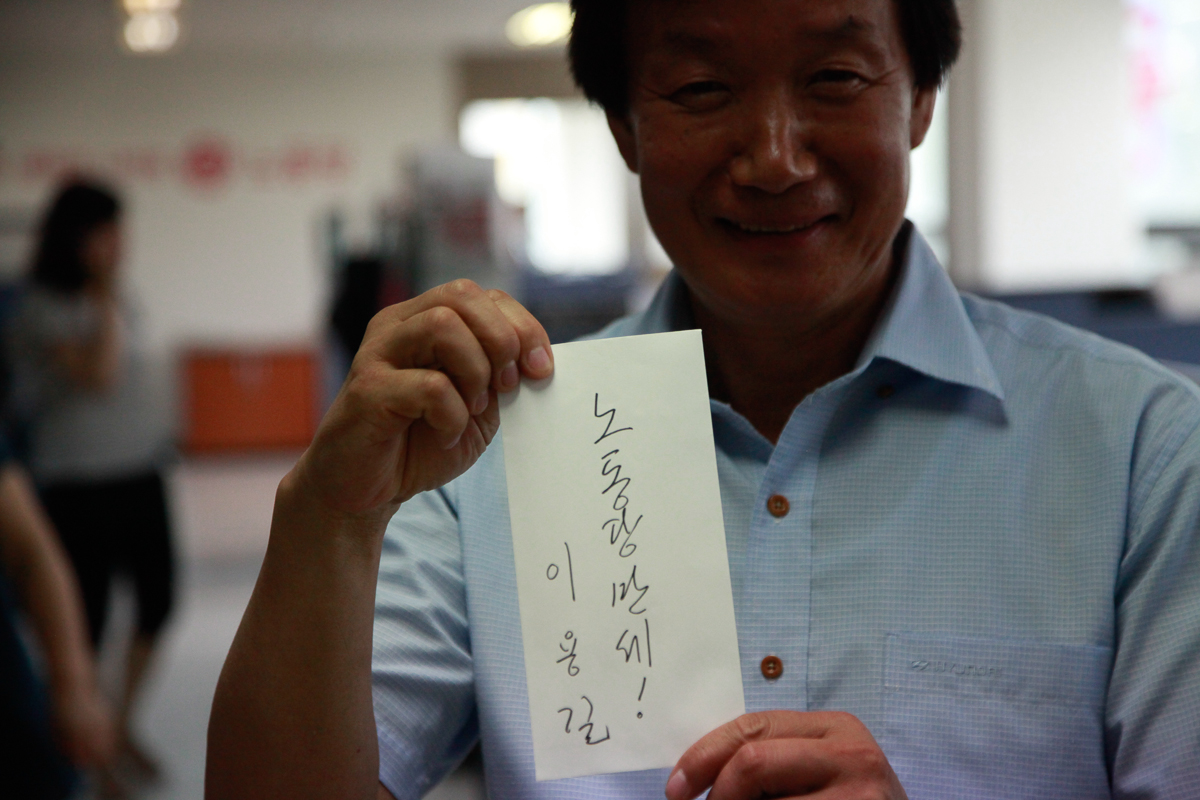 노동당 만세!
이용길